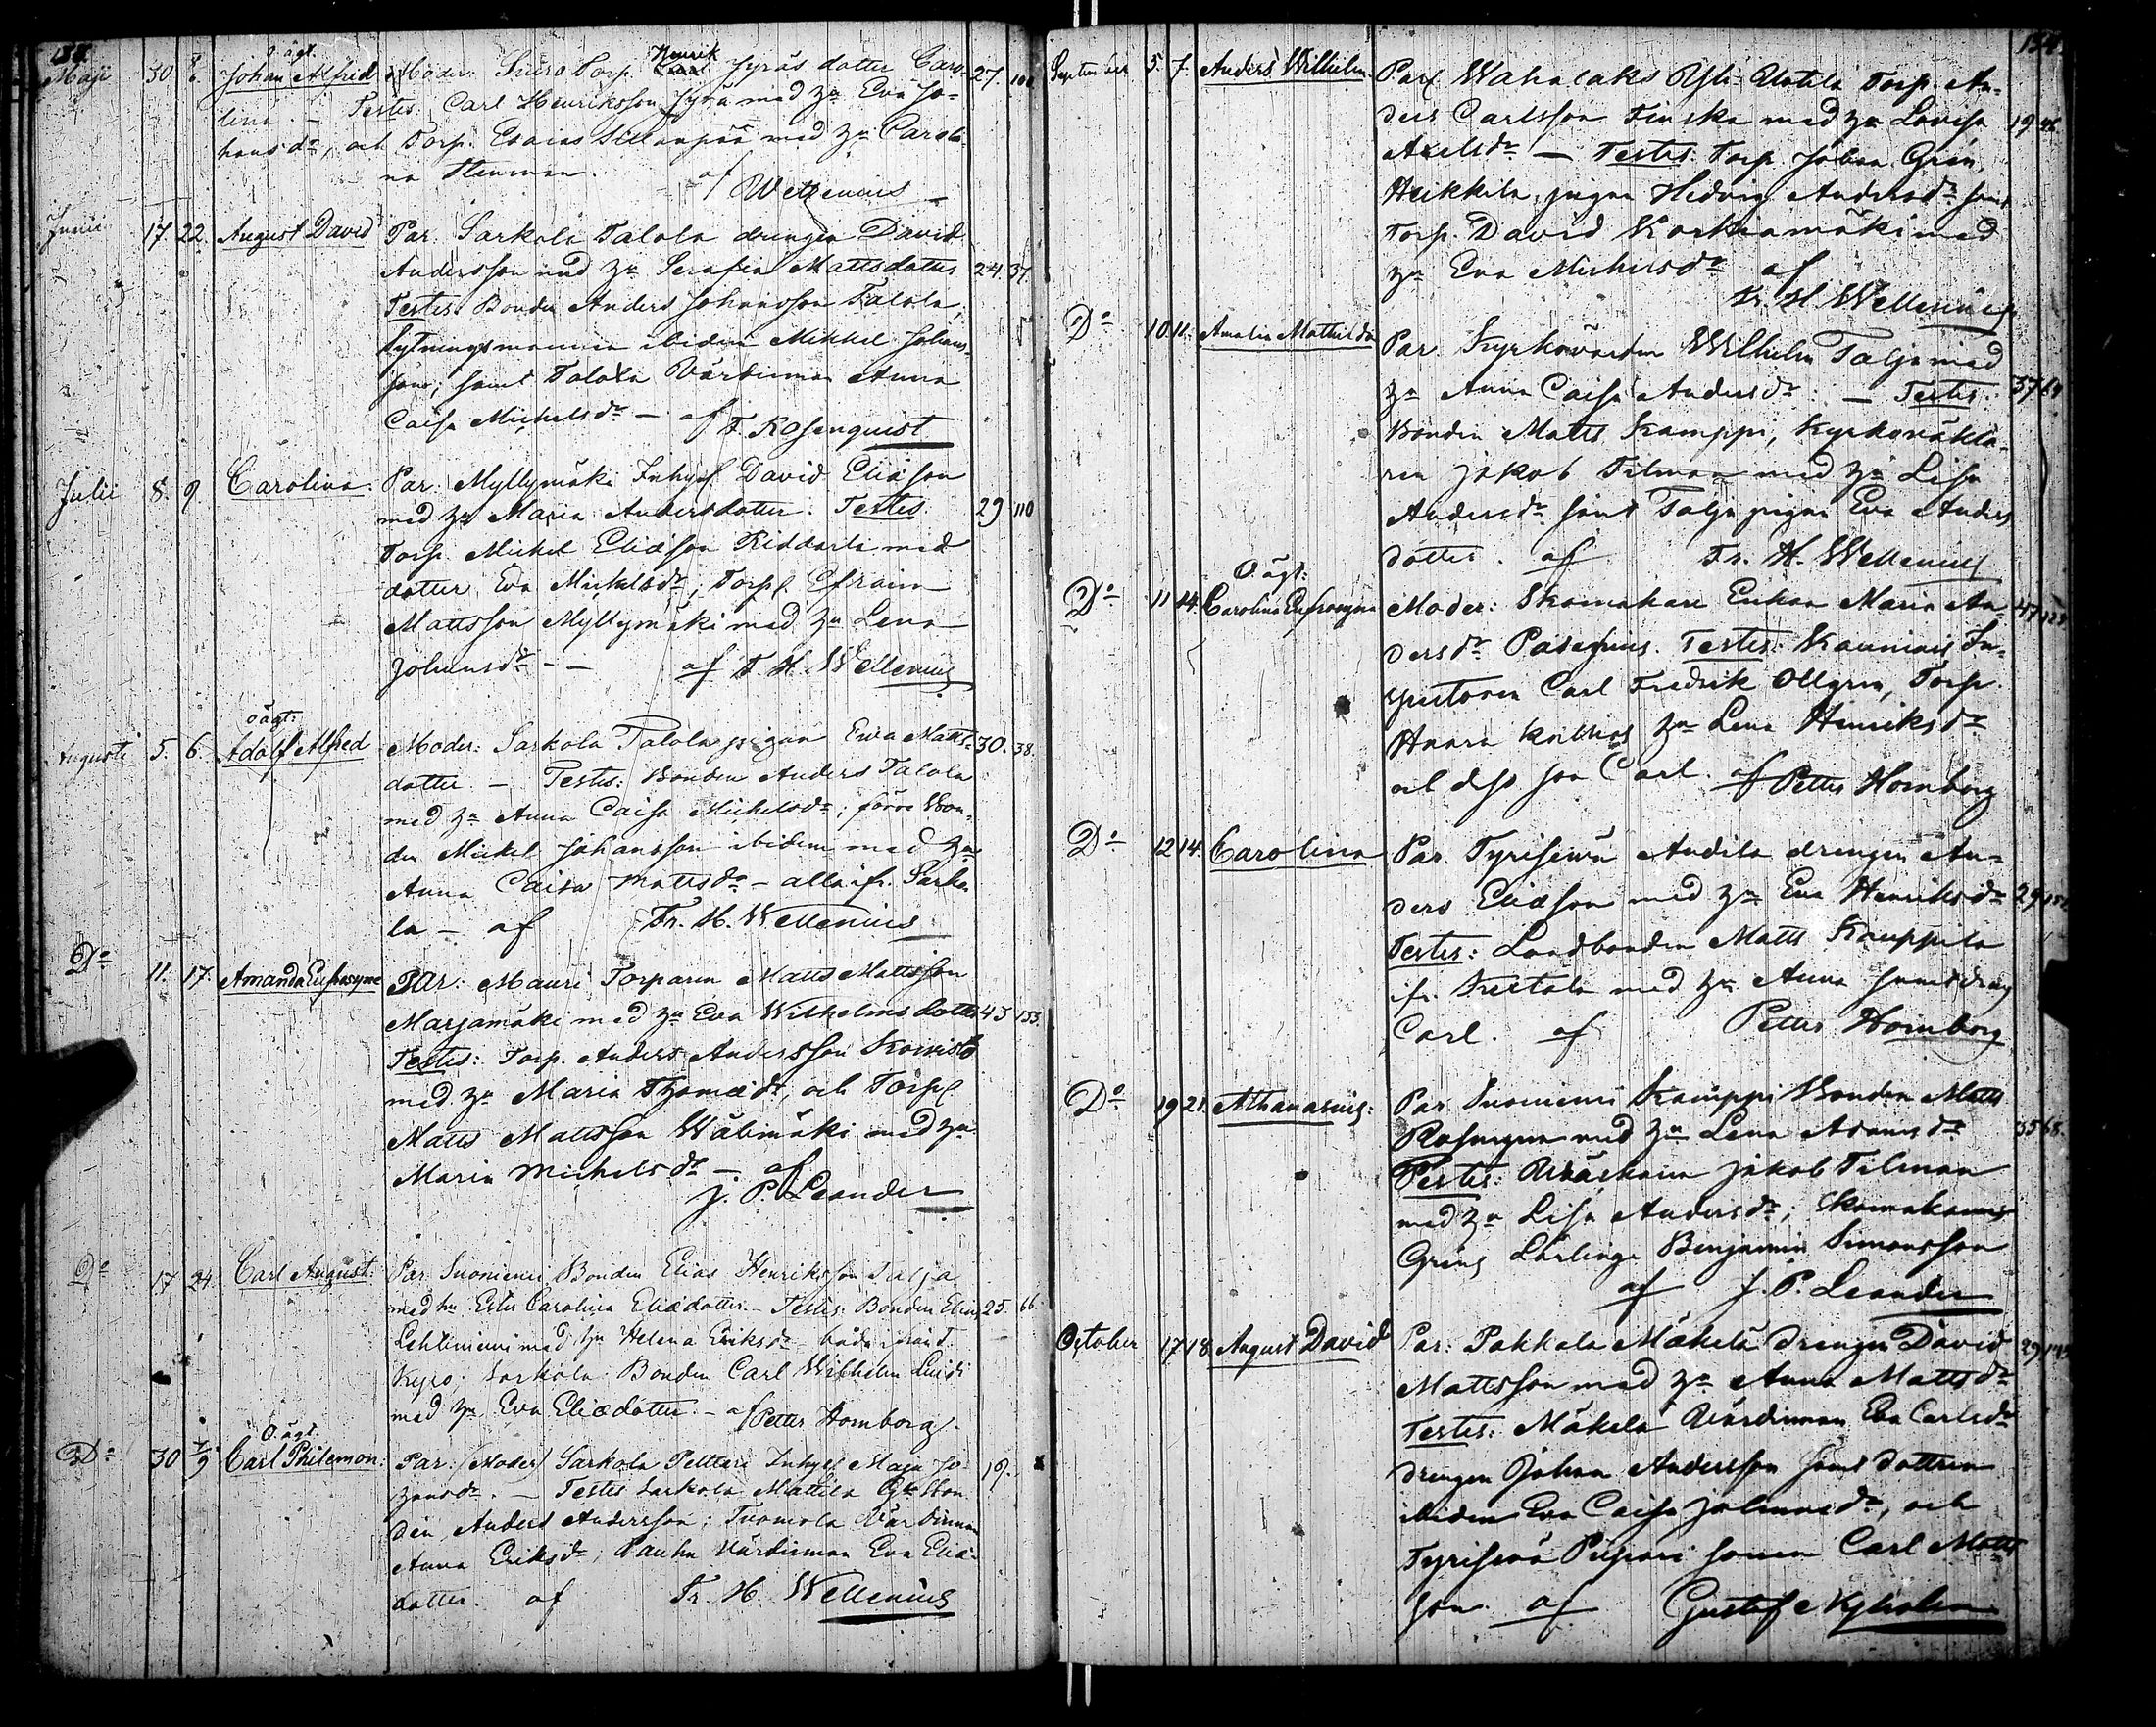 Oägt.
Maji 30 Johan Alfred Moder: Siuro Torp. Henrik Jyräs dotter Caro- 27. 100
lina. — Testes: Carl Henriksson Jyrä med h:n Eva Jo-
hansd:r, och Torp. Esaias med h:n Caroli-
na af
Wellenius
Junii 17 22. August David Par: Sarkola Talola drengen David
Andersson med h:n Serafia Mattsdotter 24. 37.
Testes: Bonden Anders Johansson Talola,
Sytningsmannen ibidem Mikkel Johans-
son; samt Talola Värdinnan Anna
Caisa Michelsd:r — af F. Rosenquist
Julii 8. 9. Carolina. Par: Myllymäki Inhys David Eliæson
med h:n Maria Andersdotter. Testes: 29 110
Torp. Mickel Eliæson Riddarla med
dotter Eva Michelsd:r; Torp. Efraim
Mattsson Myllymäki med h:n Lena
Johansd:r - — af F. H. Wellenius
oägt:
Augusti 5. 6. Adolf Alfred Moder: Sarkola Talola pigan Ewa Matts- 30. 38.
dotter. — Testes: Bonden Anders Talola
med h:n Anna Caisa Michelsd:r; förre Bon-
den Mickel Johansson ibidem med h:n
Anna Caisa Mattsd:r — alla ifr. Sarko-
la — af Fr. H. Wellenius
D:o 11. 17. Amanda Eufrosyne Par: Mauri Torparen Matts Mattsson
Marjamäki med h:n Eva Wilhelms dotter 43 153.
Testes: Torp. Anders Andersson Koivisto
med h:n Maria Thomæd:r, och Torp.
Matts Mattsson Wälimäki med h:n
Maria Michelsd:r — af
J. P. Leander
D:o 17. 24. Carl August: Par: Suoniemi Bonden Elias Henriksson Talja
med h:n Ester Carolina Eliædotter. — Testes: Bonden Elias 25. 66.
Lehtiniemi med h:n Helena Eriksd:r - både ifrån
Kyro; Sarkola Bonden Carl Wilhelm
med h:n Eva Eliædotter. — af Petter Homborg.
Oägt.
D:o 30 Carl Philemon: Par: (Moder) Sarkola Pelttari Inhys Maja Jo- 19.
hansd:r. — Testes: Sarkola Mattila Bon-
den Anders Andersson; Tuomola Värdinnan
Anna Eriksd:r; Pauhu Värdinnan Eva Eliæ-
dotter. af Fr. H. Wellenius
154
September 5. 7. Anders Wilhelm. Par: Wahalaks Yli Uotila Torp. An-
ders Carlsson Finska med h:n Lovisa 19
Axelsd:r — Testes: Torp. Johan Grön,
Heikkila pigan Hedvig Andersd:r samt
Torp. David Korkeamäki med
h:n Eva Michelsd:r af
Fr. H. Wellenius
D:o 10. 11. Amalia Mathilda Par. Kyrkovärden Wilhelm Talja med
h:n Anna Caisa Andersd:r: — Testes: 37 64
Bonden Matts Kamppi, Kyrkoväkta-
ren Jakob Tilman med h:n Lisa
Andersd:r samt Talja pigan Eva Anders
dotter. af Fr. H. Wellenius
Oägt:
D:o 11 14. Carolina Eufrosyna Moder: Skomakare Enkan Maria An- 47
dersd:r Padenius. Testes: Kauniais In-
spectoren Carl Fredrik Ollgren, Torp.
h:n Lena Henriksd:r
och dess son Carl. af Petter Homborg
D:o 12 14. Carolina Par. Tyrisevä Andila drengen An-
ders Eliæson med h:n Eva Henriksd:r 29
Testes: Landbonden Matts Kauppila
ifr. med h:n Anna samt dreng
Carl. af Petter Homborg
D:o 19 21. Athanasius: Par. Suoniemi Kamppi Bonden Matts
med h:n Lena Adamsd:r 35 68.
Testes: Jakob Tilman
med h:n Lisa Andersd:r; Skomakaren
Gröns Lärlinge Benjamin Simonsson
af J. P. Leander
October 17 18 August David Par: Pakkala Mäkelä Drengen David 29
Mattsson med h:n Anna Mattsd:r
Testes: Mäkelä Värdinnan Eva Carlsd:r
drengen Johan Andersson samt dottren
ibidem Eva Caisa Johansd:r, och
Tyrisevä Piipari sonen Carl Matts
son. af Gustaf Nyholm